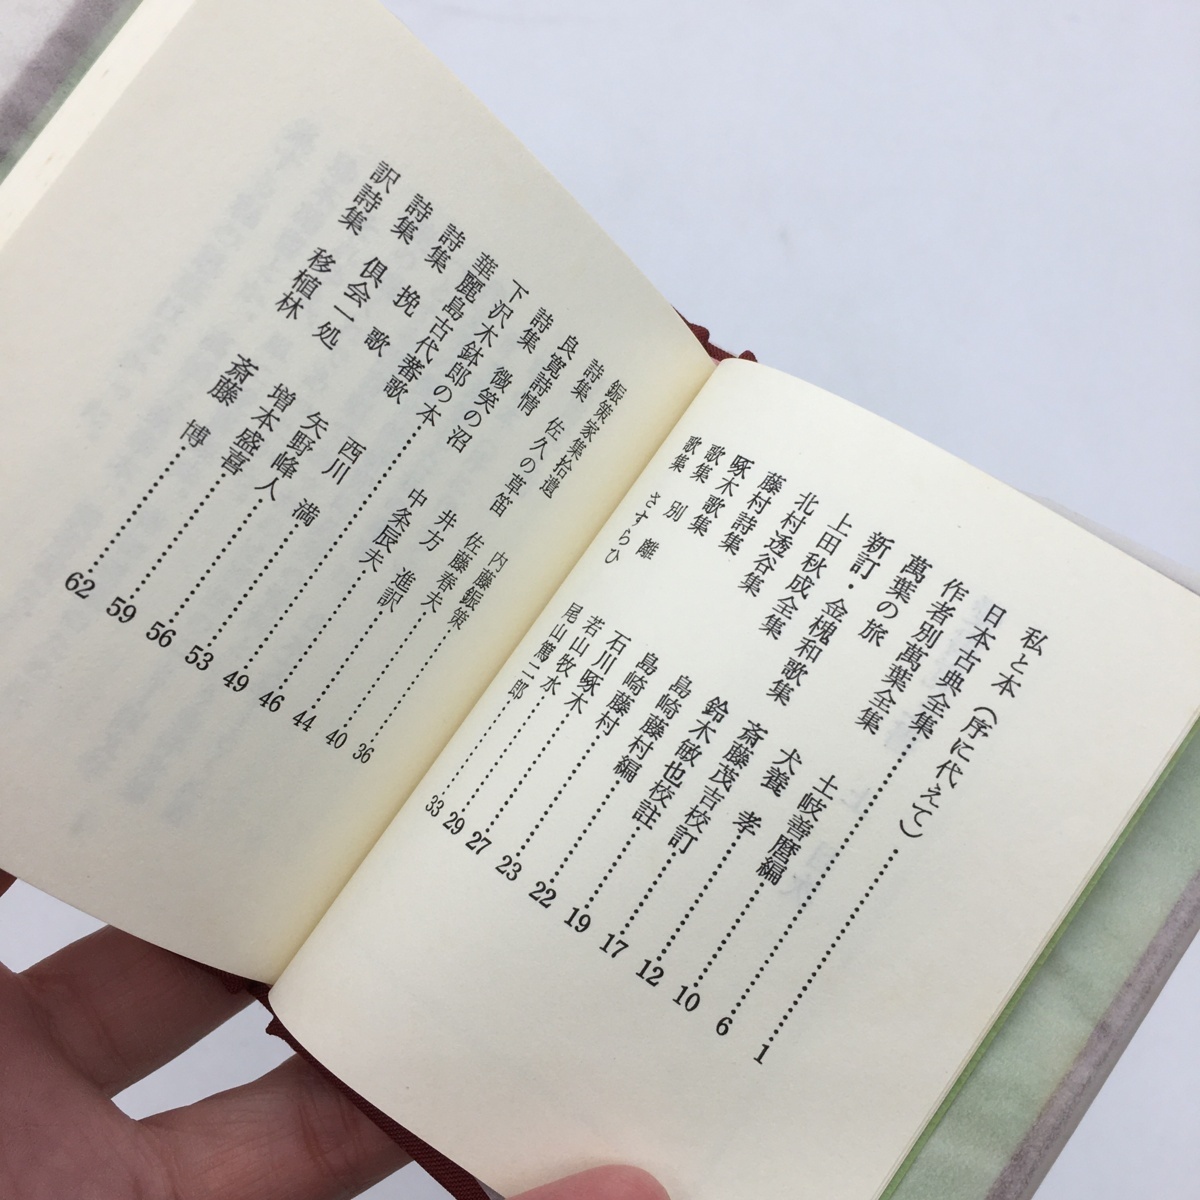 私と本（序に代えて）……1
日本古典全集……6
作者別萬葉全集 土岐善麿編……10
萬葉の旅 犬養 孝……12
新訂・金槐和歌集 斎藤茂吉校訂……17
上田秋成全集 鈴木敏也校註……19
北村透谷集 島崎藤村編……22
藤村詩集 島崎藤村……23
啄木歌集 石川啄木……27
歌集 別離 若山牧水……29
歌集 さすらひ 尾山篤二郎……33
鋠策家集拾遺 内藤鋠策……36
詩集 佐久の草笛 佐藤春夫……40
良寛詩情 井方 進訳……44
詩集 微笑の沼 中条辰夫……46
下沢木鉢郎の本……49
華麗島古代蕃歌 西川 満……53
詩集 挽歌 矢野峰人……56
詩集 倶会一処 増本盛喜……59
訳詩集 移植林 斎藤 博……62